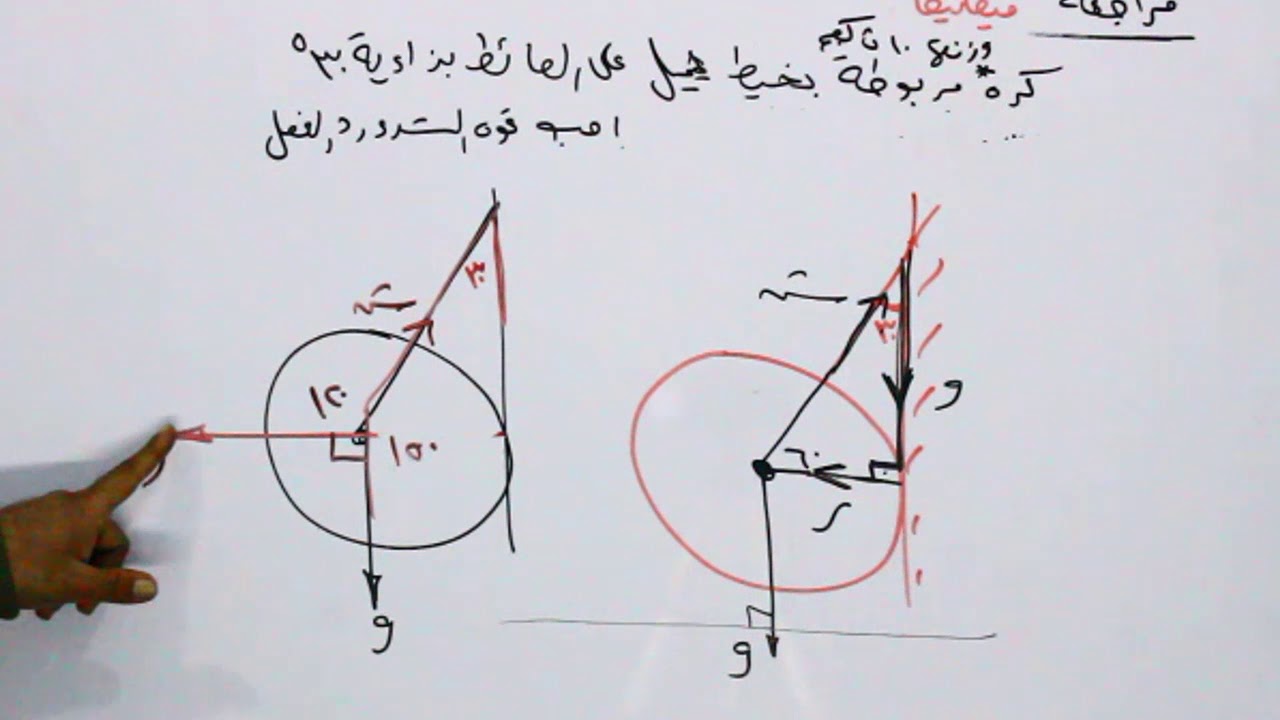 مراجعة ميكانيكا
وزنها ١٠ ث كجم
كرة * مربوطة بخيط يميل على الحائط بزاوية ٣٠°
احسب قوة الشد ورد الفعل
شـ
٣٠
١٢٠
١٥٠
ر
و
شـ
٣٠
و
٦٠
ر
و